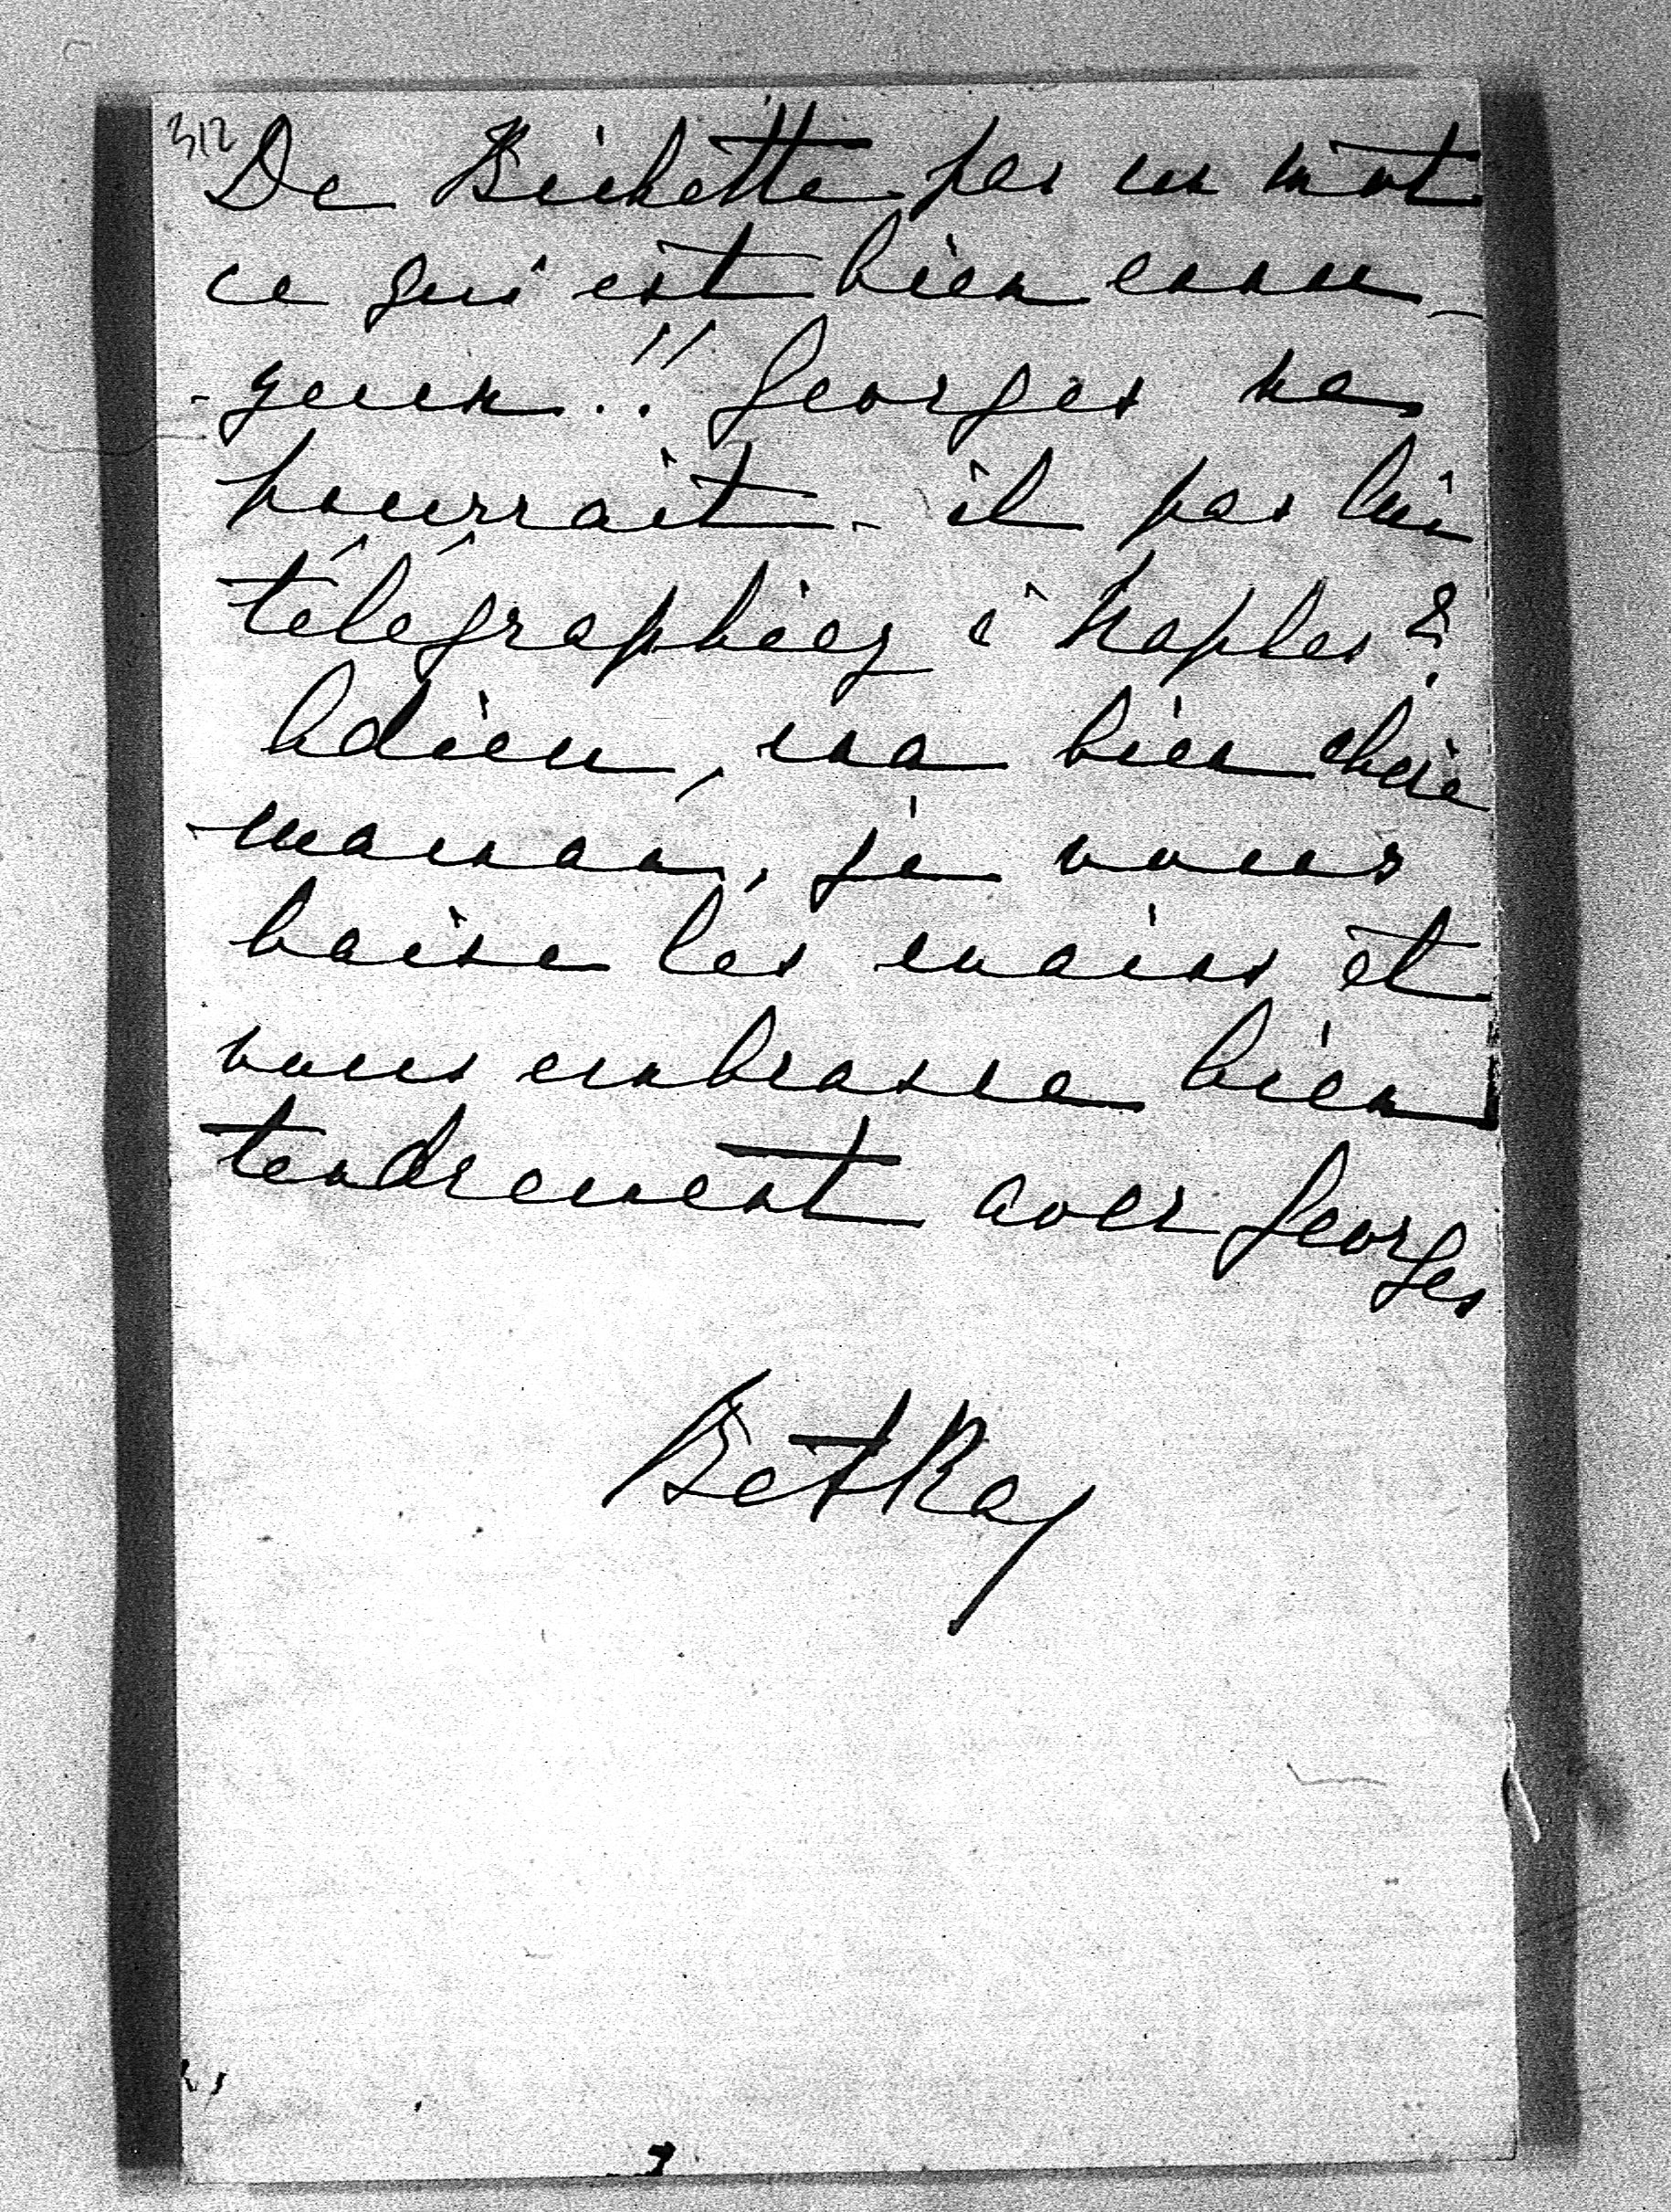 312
De Bichette pas un mot
ce qui est bien ennu-
-yeux..!! Georges ne
pourrait-il pas lui
télégraphier à Naples?
Adieu, ma bien chère
maman, je vous
baise les mains et
vous embrasse bien
tendrement avec Georges
Betka